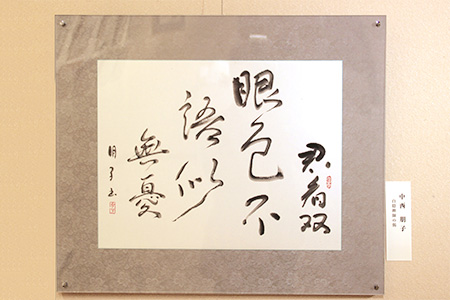 君看双
眼色不
語似
無憂
朋子書
中西 朋子